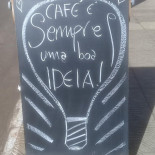 CAFÉ É
Sempre
uma boa
IDEIA!